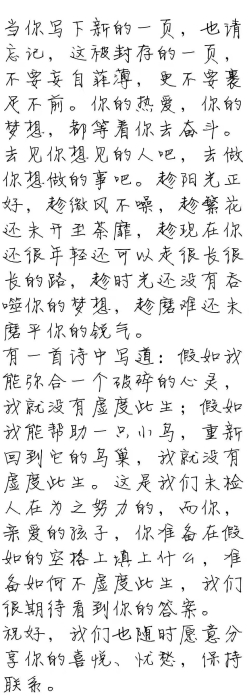 当你写下新的一页，也请
忘记，这被封存的一页，
不要妄自菲薄，更不要裹
足不前。你的热爱，你的
梦想，都等着你去奋斗。
去见你想见的人吧，去做
你想做的事吧。趁阳光正
好，趁微风不噪，趁繁花
还未开至荼靡，趁现在你
还很年轻还可以走很长很
长的路，趁时光还没有吞
噬你的梦想，趁磨难还未
磨平你的锐气。
有一首诗中写道：假如我
能弥合一个破碎的心灵，
我就没有虚度此生；假如
我能帮助一只小鸟，重新
回到它的鸟巢，我就没有
虚度此生。这是我们未检
人在为之努力的，而你，
亲爱的孩子，你准备在假
如的空格上填上什么，准
备如何不虚度此生，我们
很期待看到你的答案。
祝好，我们也随时愿意分
享你的喜悦、忧愁，保持
联系。